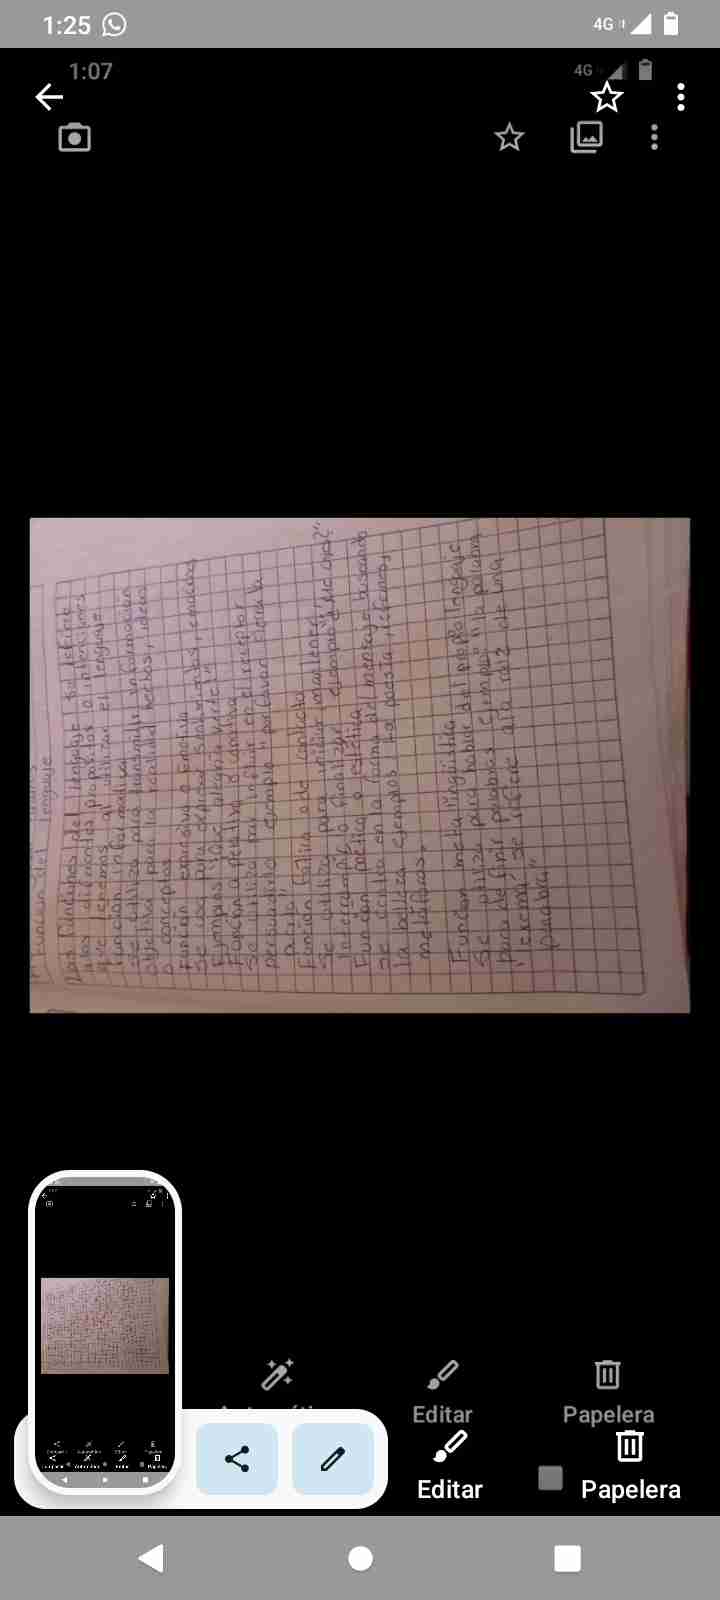 1:25
4G
1:07
4G
Funcion del lenguaje
Las funciones del lenguaje se refiere
a los diferentes propositos o intenciones
que tenemos al utilizar el lenguaje
Función informativa:
se utiliza para transmitir informacion
objetiva para la realidad hechos, ideas
o conceptos
Función expresiva o emotiva
Se usa para expresar sentimientos, emociones
Ejemplos "¡Que alegria verte!"
Función apelativa o conativa
Se utiliza para influir en el receptor
persuadirlo ejemplo "por favor cierra la
puerta",
Función fática
Se utiliza para iniciar mantener,
interrumpir o finalizar ejemplo
Función poética o estética
Se centra en la forma del mensaje buscando
la belleza ejemplos: la poesía,
metáforas,
Funcion metalingüística
Se utiliza para hablar del propio lenguaje
para definir palabras ejemplo: "la palabra
se refiere a la raiz de una
palabra"
Editar
Papelera
Editar
Papelera